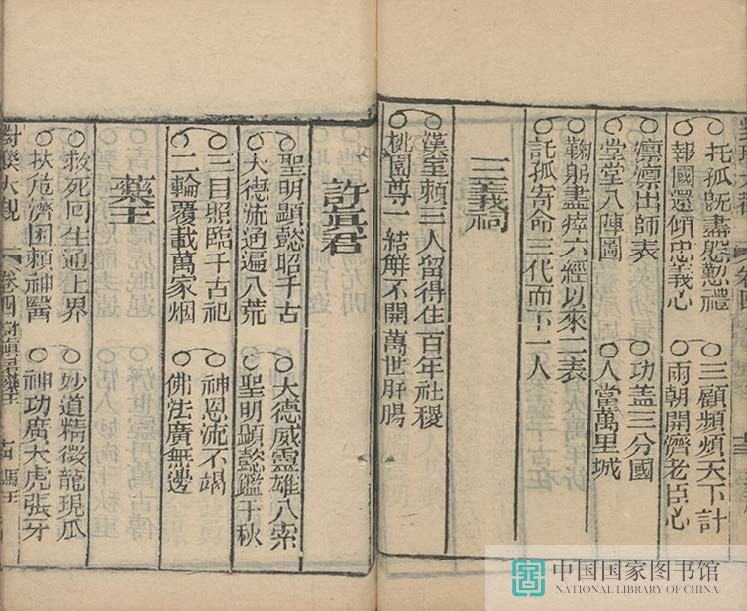 托孤既盡慇懃禮
三顧頻煩天下計
報國還傾忠義心
兩朝開濟老臣心
凛凛出師表
功盖三分國
堂堂八陣圖
人當萬里城
鞠躬盡瘁六經以來二表
託孤寄命三代而下一人
三義祠
漢室賴三人留得住百年社稷
桃園尊一結解不開萬世肝腸
許真君
聖明顯懿昭千古
大德威靈雄八索
大德流通遍八荒
聖明顯懿鑑千秋
三目照臨千古祀
神恩流不竭
二輪覆載萬家烟
佛法廣無邊
藥王
救死回生通上界
妙道精微龍現瓜
扶危濟困頼神醫
神功廣大虎張牙
對聯大觀
卷四
中国国家图书馆
NATIONAL LIBRARY OF CHINA